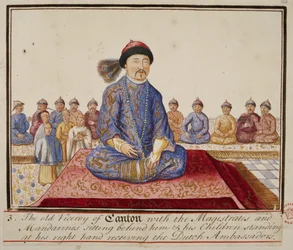 3. The old Viceroy of Canton with the Magistrates and
Mandarines sitting behind him & his Children standing
at his right hand receiving the Dutch Ambassadors.